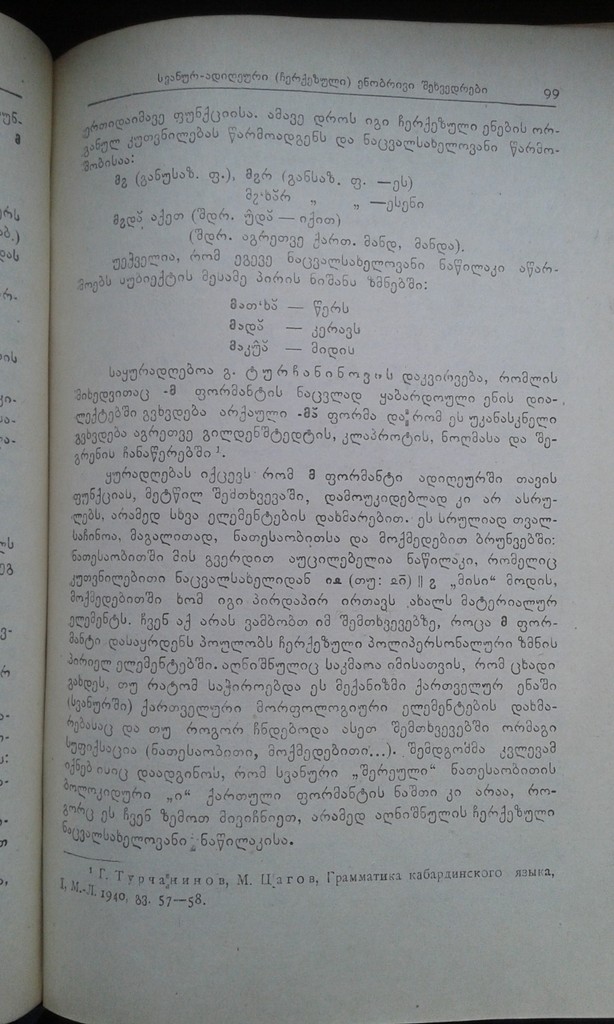 სვანურ-ადიღეური (ჩერქეზული) ენობრივი შეხვედრები 99
ერთიდაიმავე ფუნქციისა. ამავე დროს იგი ჩერქეზული ენების ორ-
განულ კუთვნილებას წარმოადგენს და ნაცვალსახელოვანი წარმო-
შობისაა:
მგ (განუსაზ. ფ.), მგრ (განსაზ. ფ. —ეს)
მგ'ხა̄რ „ „ —ესენი
მგდა̄ აქეთ (შდრ. უ̂და̄ — იქით)
(შდრ. აგრეთვე ქართ. მანდ, მანდა).
უეჭველია, რომ ეგევე ნაცვალსახელოვანი ნაწილაკი აწარ-
მოებს სუბიექტის მესამე პირის ნიშანს ზმნებში:
მათ'ხა̄ — წერს
მადა̄ — კერავს
მაკუ̂ა̄ — მიდის
საყურადღებოა გ. ტურჩანინოვის დაკვირვება, რომლის
მიხედვითაც -მ ფორმანტის ნაცვლად ყაბარდოული ენის დია-
ლექტებში გვხვდება არქაული -მა̄ ფორმა და რომ ეს უკანასკნელი
გვხვდება აგრეთვე გილდენშტედტის, კლაპროტის, ნოღმასა და შე-
გრენის ჩანაწერებში ¹.
ყურადღებას იქცევს რომ მ ფორმანტი ადიღეურში თავის
ფუნქციას, მეტწილ შემთხვევაში, დამოუკიდებლად კი არ ასრუ-
ლებს, არამედ სხვა ელემენტების დახმარებით. ეს სრულიად თვალ-
საჩინოა, მაგალითად, ნათესაობითსა და მოქმედებით ბრუნვებში:
ნათესაობითში მის გვერდით აუცილებელია ნაწილაკი, რომელიც
კუთვნილებითი ნაცვალსახელიდან (თუ: || გ „მისი“ მოდის,
მოქმედებითში ხომ იგი პირდაპირ ირთავს ახალს მატერიალურ
ელემენტს. ჩვენ აქ არას ვამბობთ იმ შემთხვევებზე, როცა მ ფორ-
მანტი დასაყრდენს პოულობს ჩერქეზული პოლიპერსონალური ზმნის
პირიელ ელემენტებში. აღნიშნულიც საკმაოა იმისათვის, რომ ცხადი
გახდეს, თუ რატომ საჭიროებდა ეს მექანიზმი ქართველურ ენაში
(სვანურში) ქართველური მორფოლოგიური ელემენტების დახმა-
რებასაც და თუ როგორ ჩნდებოდა ასეთ შემთხვევებში ორმაგი
სუფიქსაცია (ნათესაობითი, მოქმედებითი...). შემდგომმა კვლევამ
იქნებ ისიც დაადგინოს, რომ სვანური „შერეული“ ნათესაობითის
ბოლოკიდური „ი“ ქართული ფორმანტის ნაშთი კი არაა, რო-
გორც ეს ჩვენ ზემოთ მივიჩნიეთ, არამედ აღნიშნულის ჩერქეზული
ნაცვალსახელოვანი ნაწილაკისა.
¹ Г. Турчанинов, М. Цагов, Грамматика кабардинского языка,
I, М.-Л. 1940, გვ. 57—58.